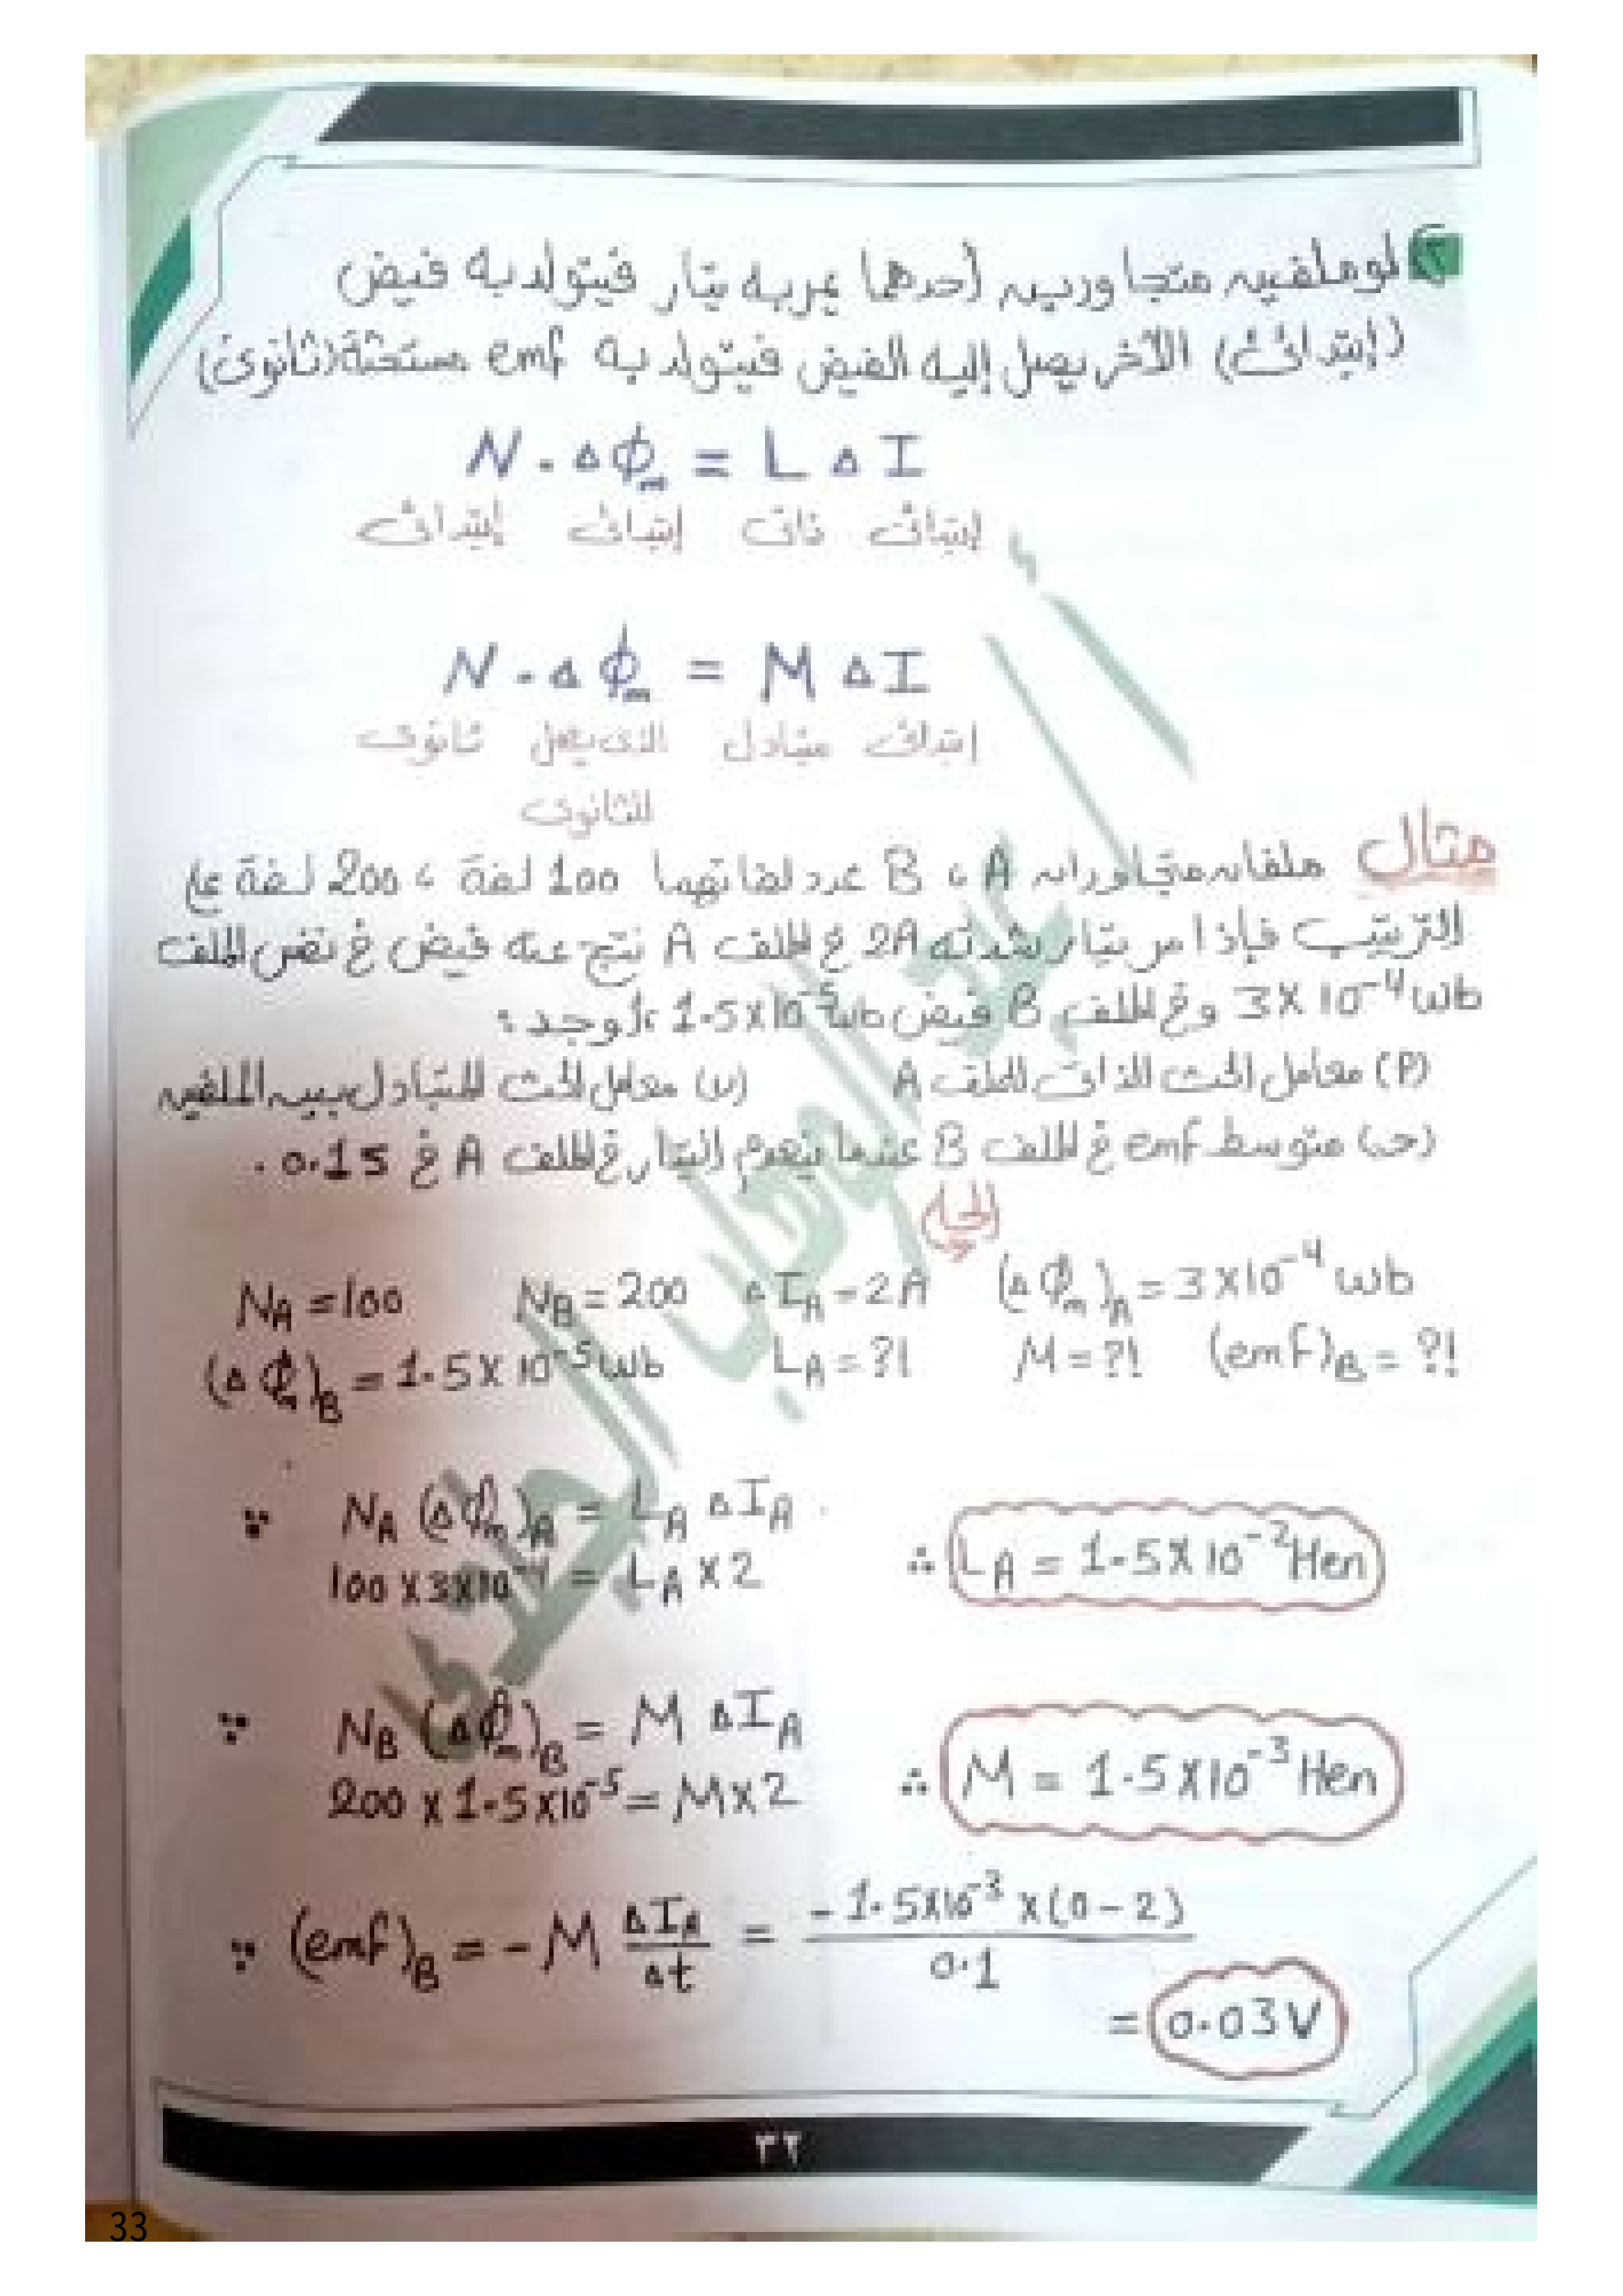 ٢ لو ملفين متجاورين أحدهما يمر به تيار فيتولد به فيض
(إبتدائى) الآخر يصل إليه الفيض فيتولد به emf مستحثة (ثانوى)
N . Δ Φm = L Δ I
إبتدائى إبتدائى ذاتى إبتدائى
N . Δ Φm = M Δ I
ثانوى الذى يصل مبتادل إبتدائى
للثانوى
مثال ملفان متجاوران A ، B عدد لفاتهما 100 لفة ، 200 لفة على
الترتيب فإذا مر تيار شدته 2A فى الملف A نتج عنه فيض فى نفس الملف
3 X 10⁻⁴ wb وفى الملف B فيض 1.5X10⁻⁵ wb ، أوجد :
(P) معامل الحث الذاتى للملف A (ں) معامل الحث المتبادل بين الملفين
(حـ) متوسط emf فى الملف B عندما ينعدم التيار فى الملف A فى 0.1s .
الحل
NA = 100 NB = 200 Δ IA = 2A (Δ Φm)A = 3X10⁻⁴ wb
(Δ Φm)B = 1.5 X 10⁻⁵ wb LA = ?! M = ?! (emf)B = ?!
∵ NA (Δ Φm)A = LA Δ IA
100 X 3X10⁻⁴ = LA X 2 ∴ LA = 1.5 X 10⁻² Hen
∵ NB (Δ Φm)B = M Δ IA
200 X 1.5 X10⁻⁵ = M X 2 ∴ M = 1.5 X10⁻³ Hen
∵ (emf)B = - M ΔIA / Δt = - 1.5X10⁻³ X (0 - 2) / 0.1
= 0.03 V
٣٢
33